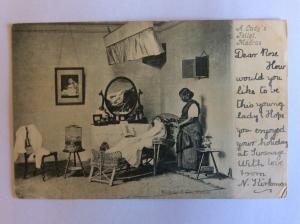 A Lady's
Toilet,
Madras
Dear Rose
How
would you
like to be
this young
lady? Hope
you enjoyed
your holiday
at Swanage
With love
from
N.